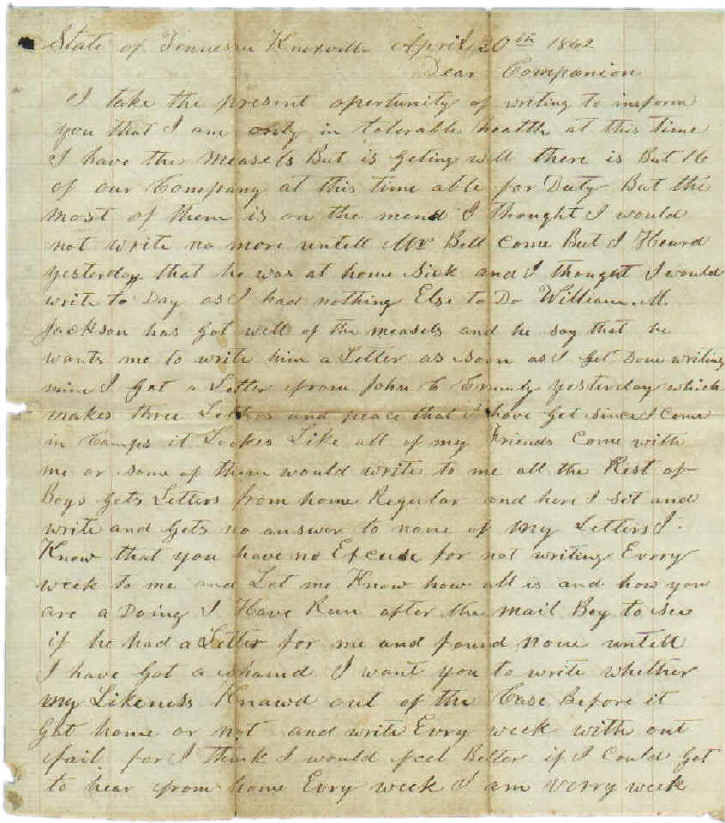 State of Tennessee Knoxville April 20th 1862
Dear Companion
I take the present opertunity of writing to inform
you that I am only in tolerable health at this time
I have the Measels But is geting well there is But 16
of our Company at this time able for Duty But the
most of them is on the mend I thought I would
not write no more untell Mr Bell Come But I Heard
yesterday that he was at home Sick and I thought I would
write to Day as I had nothing Else to Do William M.
Jackson has got well of the measels and he say that he
wants me to write him a Letter as soon as I get Done writing
mine I got a Letter from John C yesterday which
makes three Letters and peace that I have got since I Come
in Camps it Lookes Like all of my Friends Come with
me or some of them would write to me all the Rest of
Boys gets Letters from home Regular and here I sit and
write and gets no answer to none of my Letters I
Know that you have no Excuse for not writing Evrry
week to me and Let me Know how all is and how you
are a Doing I Have Run after the mail Boy to See
if he had a Letter for me and found none untell
I have got ashamd I want you to write whether
my Likeness Knawd out of the Case Before it
got home or not and write Evry week with out
fail for I think I would feel Better if I Could get
to hear from home Evry week I am verry week